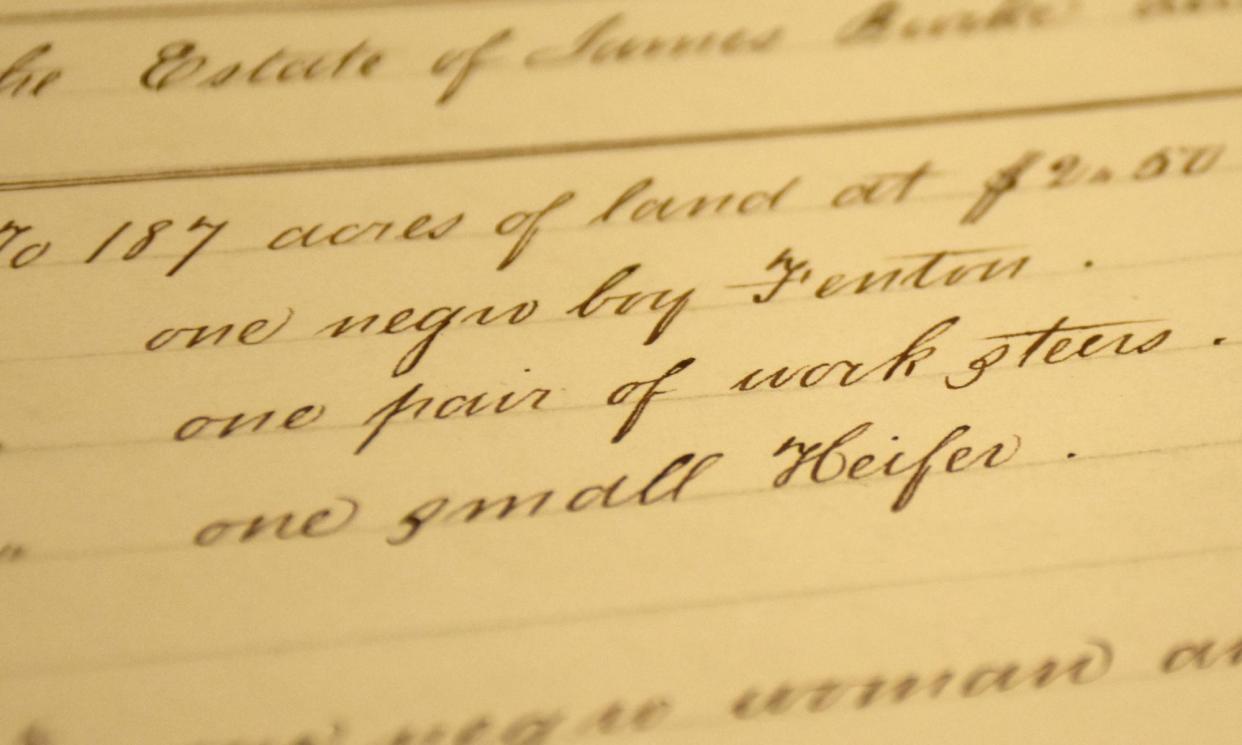 he Estate of James Burke an
To 187 acres of land at $2.50
one negro boy Fenton .
one pair of work steers .
" one small Heifer .
negro woman an